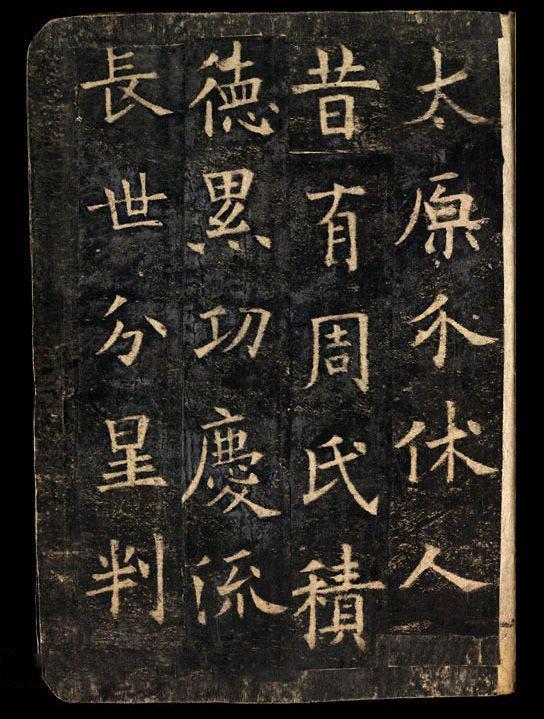 太原介休人
昔有周氏積
徳累功慶流
長世分星判